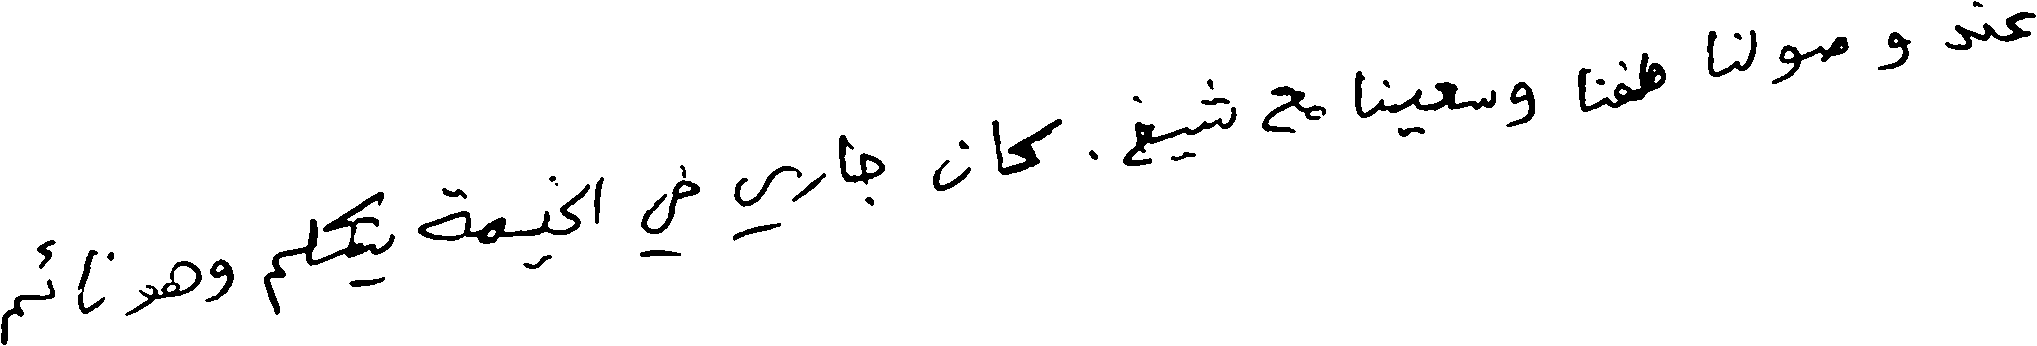 عند وصولنا طفنا وسعينا مع شيخ. كان جاري في الخيمة يتكلم وهو نائم